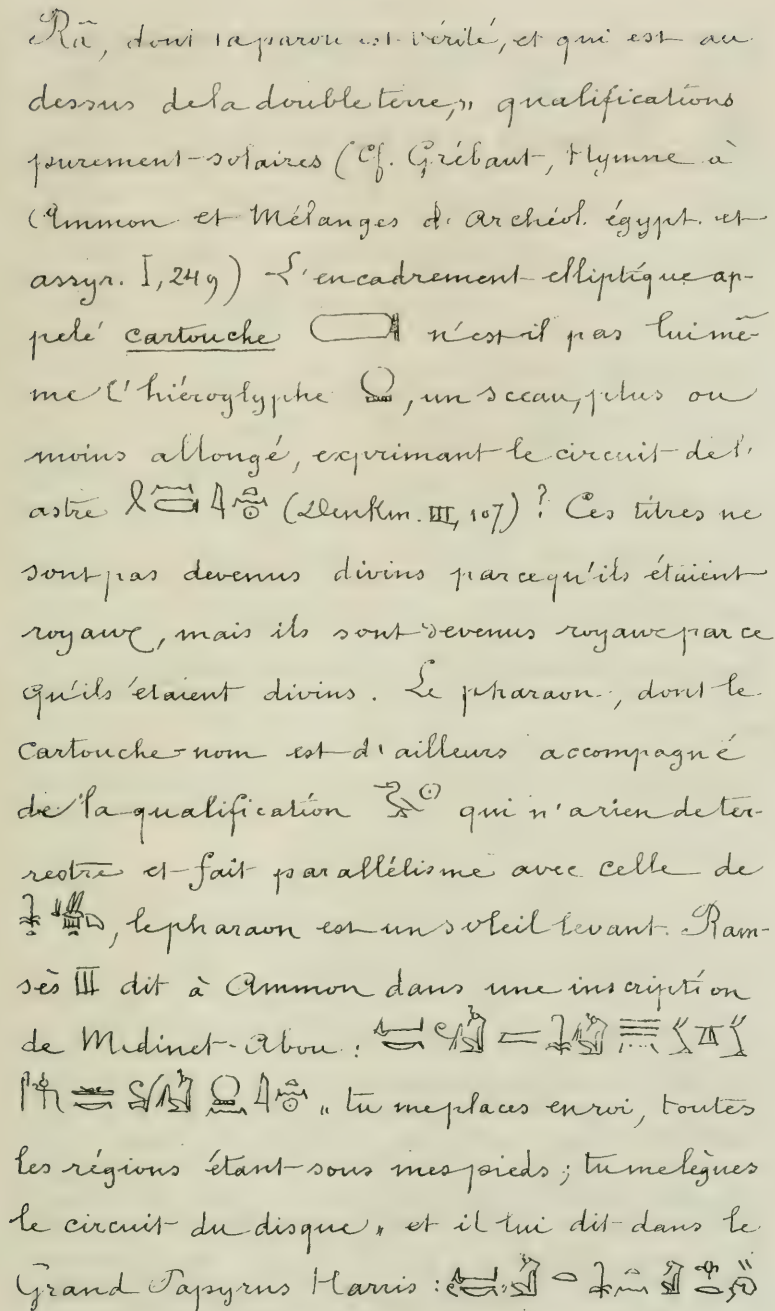 Râ, dont la parole est vérité, et qui est au
dessus de la double terre, „ qualifications
purement solaires (Cf. Grébaut, Hymne à
Ammon et Mélanges d'Archéol. égypt. et
assyr. I, 249) L'encadrement elliptique ap-
pelé cartouche n'est-il pas lui mê-
me l'hiéroglyphe , un sceau, plus ou
moins allongé, exprimant le circuit de l'
astre (Denkm. III, 107) ? Ces titres ne
sont pas devenus divins parcequ'ils étaient
royaux, mais ils sont devenus royaux par ce
qu'ils étaient divins. Le pharaon, dont le
cartouche-nom est d'ailleurs accompagné
de la qualification qui n'a rien de ter-
restre et fait parallélisme avec celle de
, le pharaon est un soleil levant. Ram-
sès III dit à Ammon dans une inscription
de Medinet-Abou :
„ tu me places en roi, toutes
les régions étant sous mes pieds ; tu me lègues
le circuit du disque „ et il lui dit dans le
Grand Papyrus Harris :